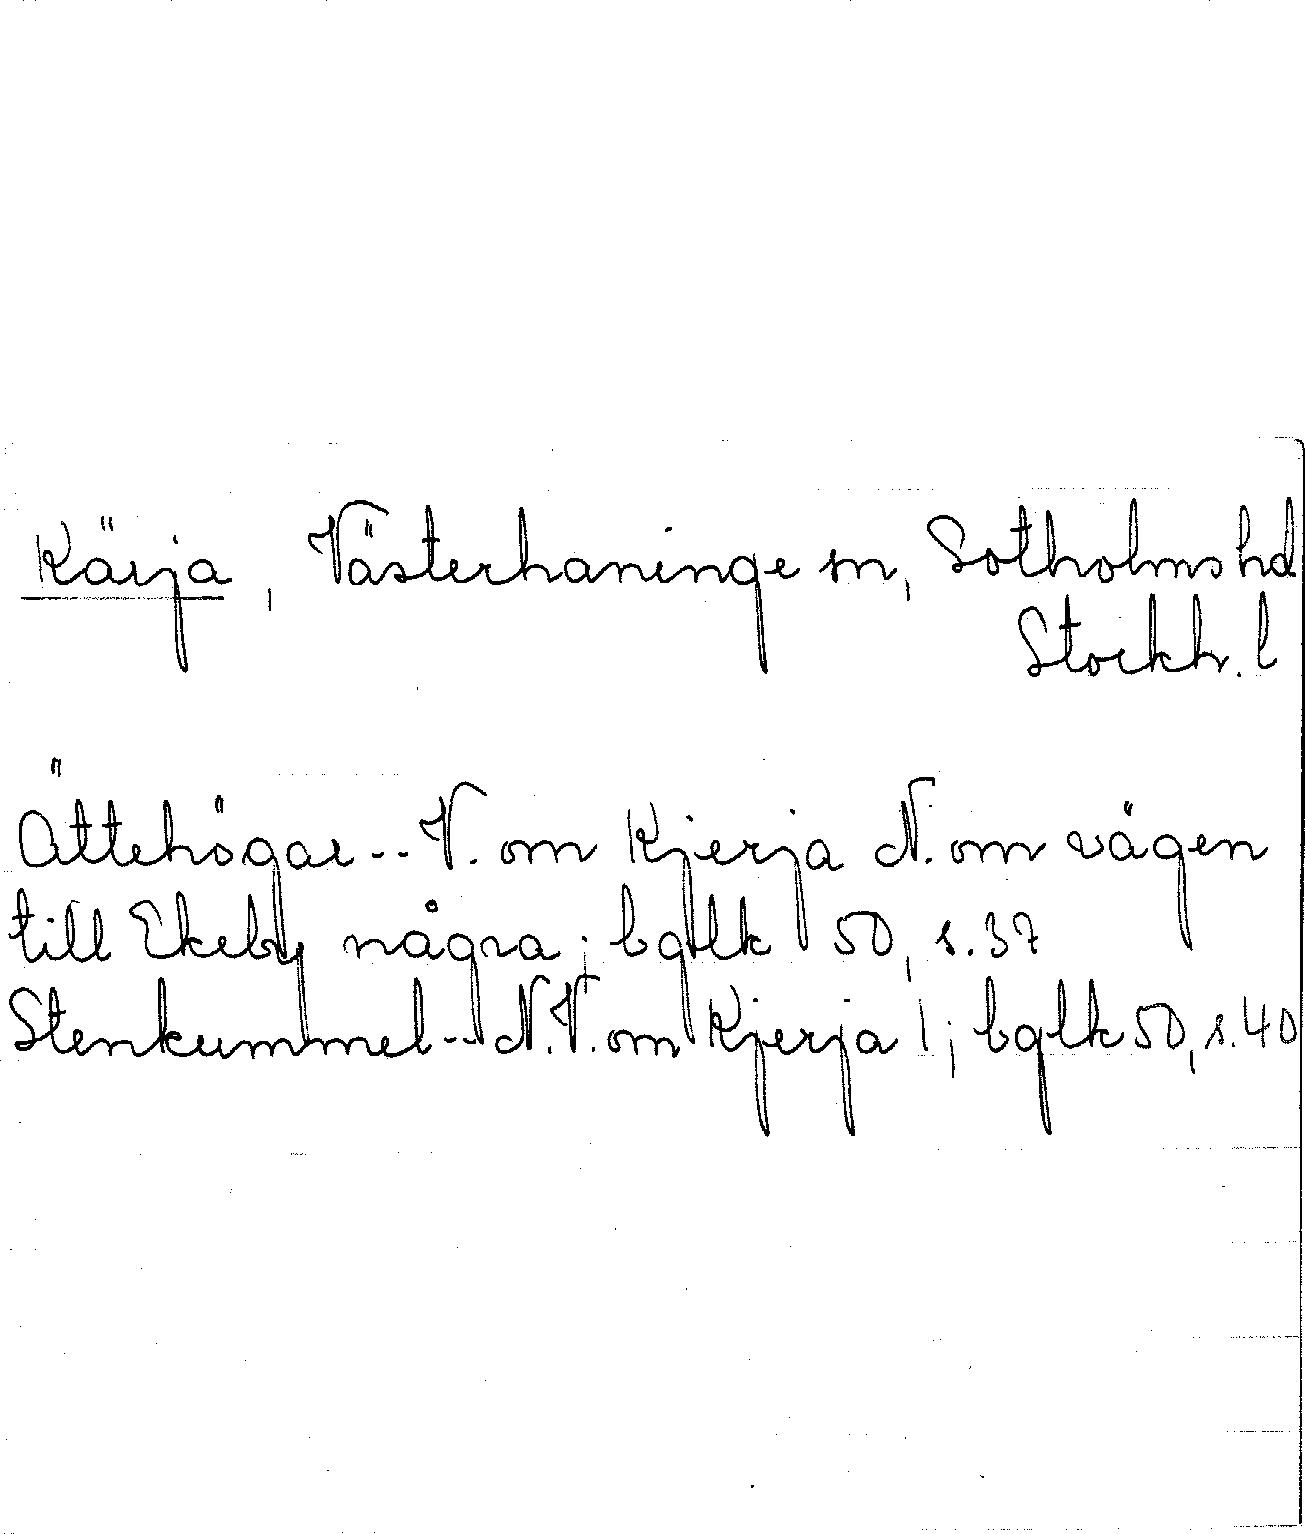 Kärja, Västerhaninge sn, Sotholms hd
Stockh. l
Ättehögar -- V. om Kjerja N. om vägen
till Ekeby några; bglk 50, s. 37
Stenkummel -- N.V. om Kjerja 1; bglk 50, s. 40